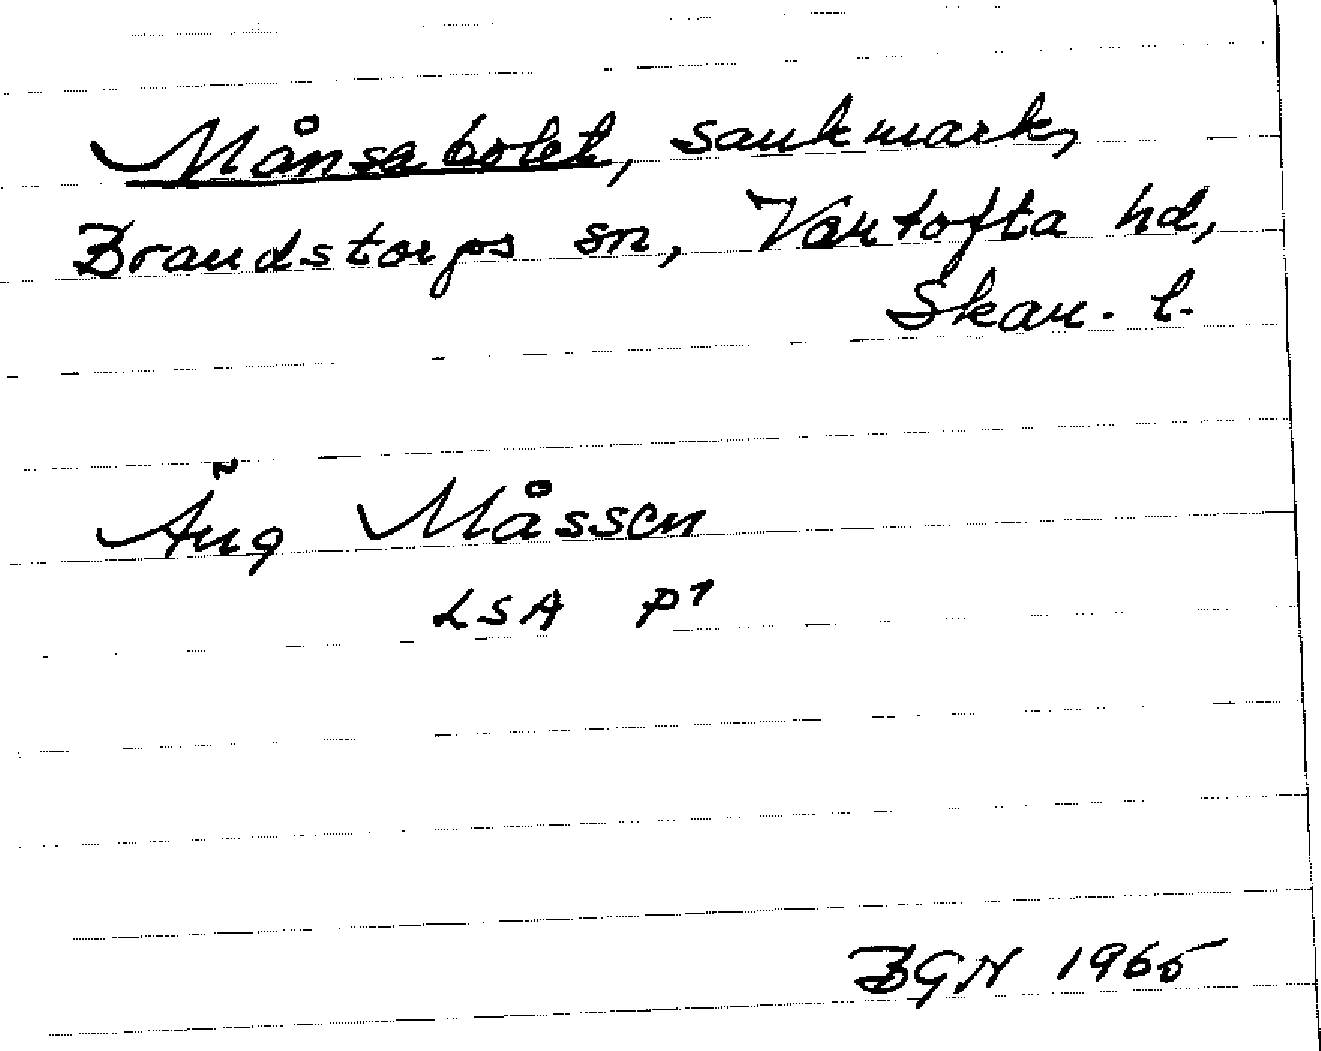 Månsabolet, sankmark,
Brandstorps sn, Vartofta hd,
Skar. l.
Äng Måssen
LSA P1
BGN 1965